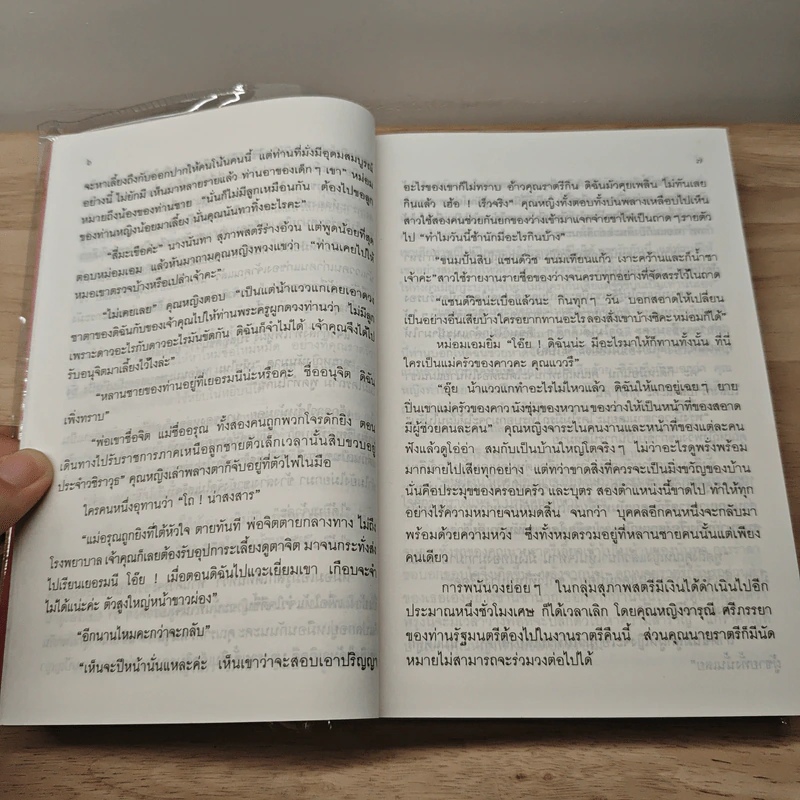 ๖
จะหาเลี้ยงถึงกับออกปากให้คนโน้นคนนี้ แต่ท่านที่มั่งมีอุดมสมบูรณ์
อย่างนี้ ไม่ยักมี เห็นมาหลายรายแล้ว ท่านอาของเด็กๆ เขา” หม่อม
หมายถึงน้องของท่านชาย “นั่นก็ไม่มีลูกเหมือนกัน ต้องไปขอลูก
ของท่านหญิงน้อยมาเลี้ยง นั่นคุณนันทาทิ้งอะไรคะ”
“สี่มะเขือค่ะ” นางนันทา สุภาพสตรีร่างอ้วน แต่พูดน้อยที่สุด
ตอบหม่อมเอม แล้วหันมาถามคุณหญิงพวงแขว่า “ท่านเคยไปให้
หมอเขาตรวจบ้างหรือเปล่าเจ้าคะ”
“ไม่เคยเลย” คุณหญิงตอบ “เป็นแต่น้าแววแกเคยเอาดวง
ชาตาของดิฉันกับของเจ้าคุณไปให้ท่านพระครูผูกดวงท่านว่า ไม่มีลูก
เพราะดาวอะไรกับดาวอะไรมันขัดกัน ดิฉันก็จำไม่ได้ เจ้าคุณจึงได้ไป
รับอนุจิตมาเลี้ยงไว้ไงล่ะ”
“หลานชายของท่านอยู่ที่เยอรมนีน่ะหรือคะ ชื่ออนุจิต ดิฉัน
เพิ่งทราบ”
“พ่อเขาชื่อจิต แม่ชื่ออรุณ ทั้งสองคนถูกพวกโจรดักยิง ตอน
เดินทางไปรับราชการภาคเหนือลูกชายตัวเล็กเวลานั้นสิบขวบอยู่
ประจำวชิราวุธ” คุณหญิงเล่าพลางตาก็จับอยู่ที่ตัวไพ่ในมือ
ใครคนหนึ่งอุทานว่า “โถ ! น่าสงสาร”
“แม่อรุณถูกยิงที่ใต้หัวใจ ตายทันที พ่อจิตตายกลางทาง ไม่ถึง
โรงพยาบาล เจ้าคุณก็เลยต้องรับอุปการะเลี้ยงดูตาจิต มาจนกระทั่งส่ง
ไปเรียนเยอรมนี โอ๊ย ! เมื่อตอนดิฉันไปแวะเยี่ยมเขา เกือบจะจำ
ไม่ได้แน่ะค่ะ ตัวสูงใหญ่หน้าขาวผ่อง”
“อีกนานไหมคะกว่าจะกลับ”
“เห็นจะปีหน้านั่นแหละค่ะ เห็นเขาว่าจะสอบเอาปริญญา
๗
อะไรของเขาก็ไม่ทราบ อ้าวคุณราตรีกิน ดิฉันมัวคุยเพลิน ไม่ทันเลย
กินแล้ว เฮ้อ ! เร็วจริง” คุณหญิงทั้งตอบทั้งบ่นพลางเหลือบไปเห็น
สาวใช้สองคนช่วยกันยกของว่างเข้ามาแจกจ่ายขาไพ่เป็นถาดๆรายตัว
ไป “ทำไมวันนี้ช้านักมีอะไรกินบ้าง”
“ขนมปั้นสิบ แซนด์วิช ขนมเทียนแก้ว เงาะคว้านและก็น้ำชา
เจ้าค่ะ”สาวใช้รายงานรายชื่อของว่างจนครบทุกอย่างที่จัดสรรไว้ในถาด
“แซนด์วิชน่ะเบื่อแล้วนะ กินทุกๆ วัน บอกสอาดให้เปลี่ยน
เป็นอย่างอื่นเสียบ้างใครอยากทานอะไร ลองสั่งเขาบ้างซิคะ หม่อมก็ได้”
หม่อมเอมยิ้ม “โอ๊ย ! ดิฉันน่ะ มีอะไรมาให้ก็ทานทั้งนั้น ที่นี่
ใครเป็นแม่ครัวของคาวคะ คุณแววรึ”
“อุ๊ย น้าแววแกทำอะไรไม่ไหวแล้ว ดิฉันให้แกอยู่เฉยๆ ยาย
ปิ่นเขาแม่ครัวของคาว นังชุ่มของหวาน ของว่างให้เป็นหน้าที่ของสอาด
มีผู้ช่วยคนละคน” คุณหญิงจาระไนคนงานและหน้าที่ของแต่ละคน
ฟังแล้วดูโอ่อ่า สมกับเป็นบ้านใหญ่โตจริงๆ ไม่ว่าอะไรดูพรั่งพร้อม
มากมายไปเสียทุกอย่าง แต่ทว่าขาดสิ่งที่ควรจะเป็นมิ่งขวัญของบ้าน
นั่นคือประมุขของครอบครัว และบุตร สองตำแหน่งนี้ขาดไป ทำให้ทุก
อย่างไร้ความหมายจนหมดสิ้น จนกว่า บุคคลอีกคนหนึ่งจะกลับมา
พร้อมด้วยความหวัง ซึ่งทั้งหมดรวมอยู่ที่หลานชายคนนั้นแต่เพียง
คนเดียว
การพนันวงย่อยๆ ในกลุ่มสุภาพสตรีมีเงินได้ดำเนินไปอีก
ประมาณหนึ่งชั่วโมงเศษ ก็ได้เวลาเลิก โดยคุณหญิงวารุณี ศรีภรรยา
ของท่านรัฐมนตรีต้องไปในงานราตรีคืนนี้ ส่วนคุณนายราตรีก็มีนัด
หมายไม่สามารถจะร่วมวงต่อไปได้